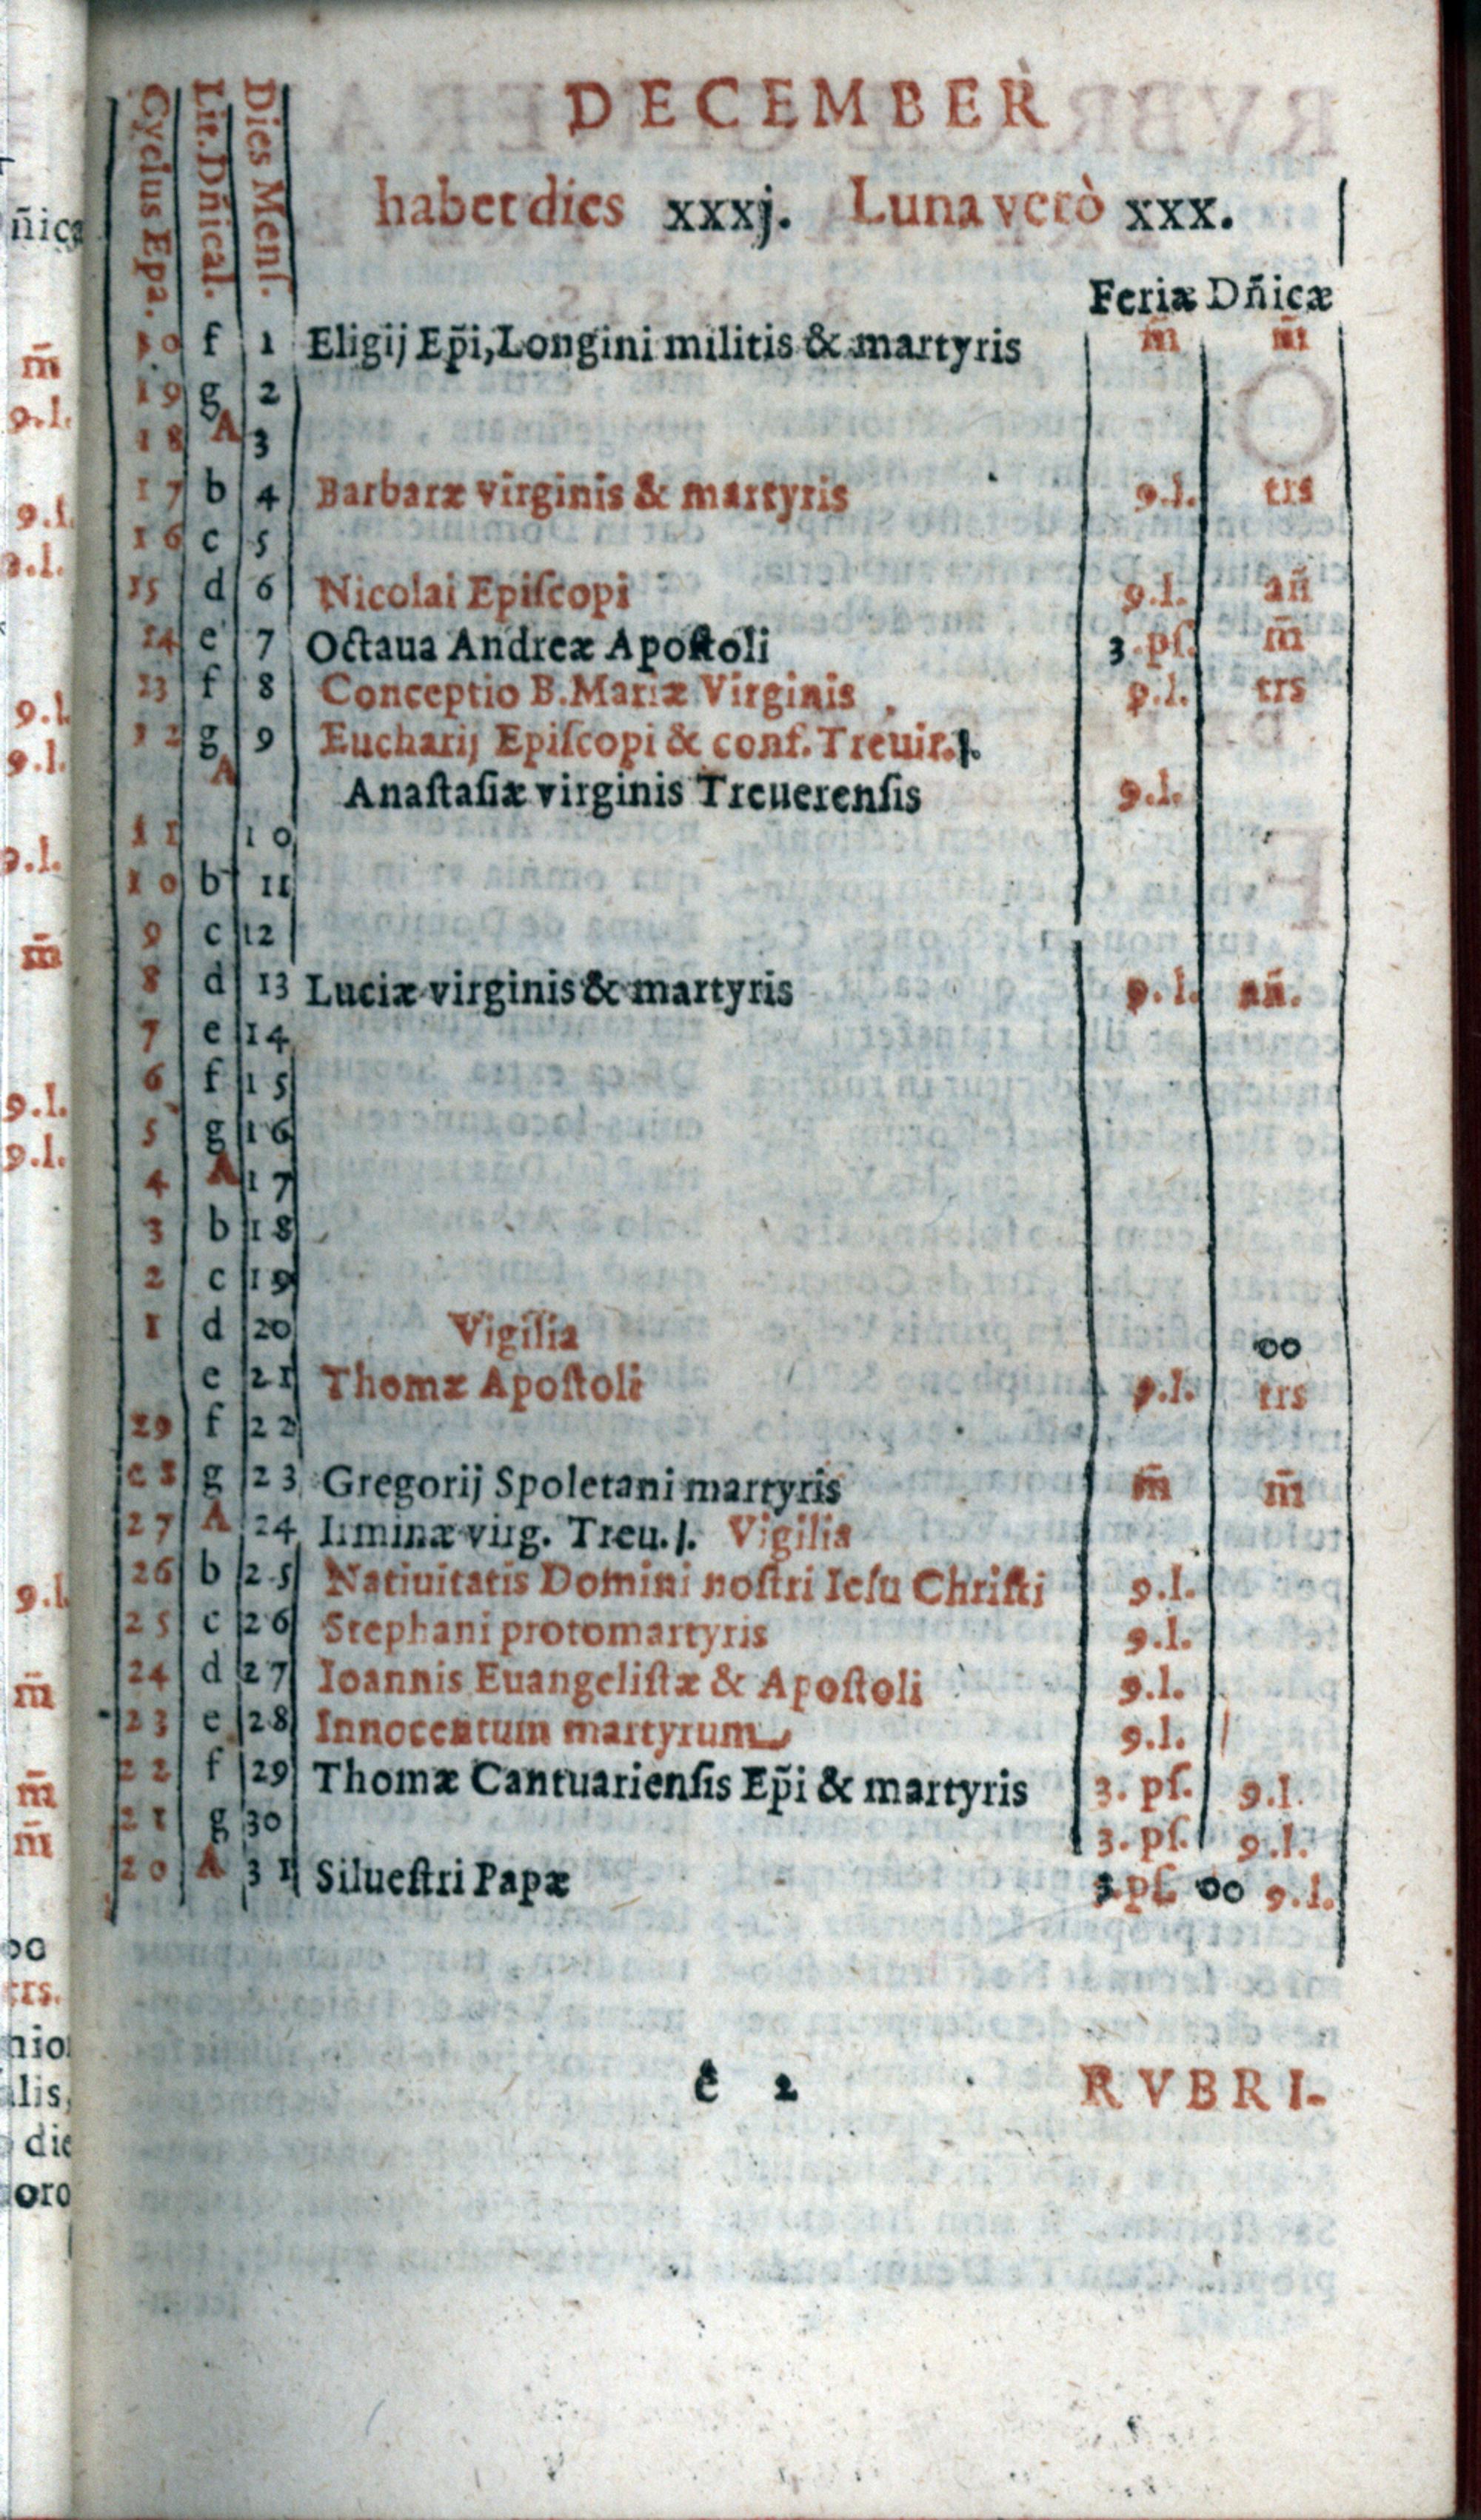 DECEMBER
habet dies xxxj. Luna verò xxx.
Cyclus Epa.
Lit. Dñical.
Dies Menſ.
Feriæ Dñicæ
30 f 1 Eligij Ep̃i, Longini militis & martyris m̃ m̃
19 g 2
18 A 3
17 b 4 Barbaræ virginis & martyris 9.l. trs
16 c 5
15 d 6 Nicolai Epiſcopi 9.l. añ
14 e 7 Octaua Andreæ Apoſtoli 3.pſ. m̃
13 f 8 Conceptio B. Mariæ Virginis 9.l. trs
12 g 9 Eucharij Epiſcopi & conf. Treuir.ſ.
A Anaſtaſiæ virginis Treuerenſis 9.l.
11 10
10 b 11
9 c 12
8 d 13 Luciæ virginis & martyris 9.l. añ.
7 e 14
6 f 15
5 g 16
4 A 17
3 b 18
2 c 19
1 d 20 Vigilia oo
e 21 Thomæ Apoſtoli 9.l. trs
29 f 22
28 g 23 Gregorij Spoletani martyris m̃ m̃
27 A 24 Irminæ virg. Treu.ſ. Vigilia
26 b 25 Natiuitatis Domini noſtri Ieſu Chriſti 9.l.
25 c 26 Stephani protomartyris 9.l.
24 d 27 Ioannis Euangeliſtæ & Apoſtoli 9.l.
23 e 28 Innocentum martyrum 9.l.
22 f 29 Thomæ Cantuarienſis Ep̃i & martyris 3. pſ. 9.l.
21 g 30 3. pſ. 9.l.
20 A 31 Silueſtri Papæ 3.pſ. oo 9.l.
é 2 RVBRI-